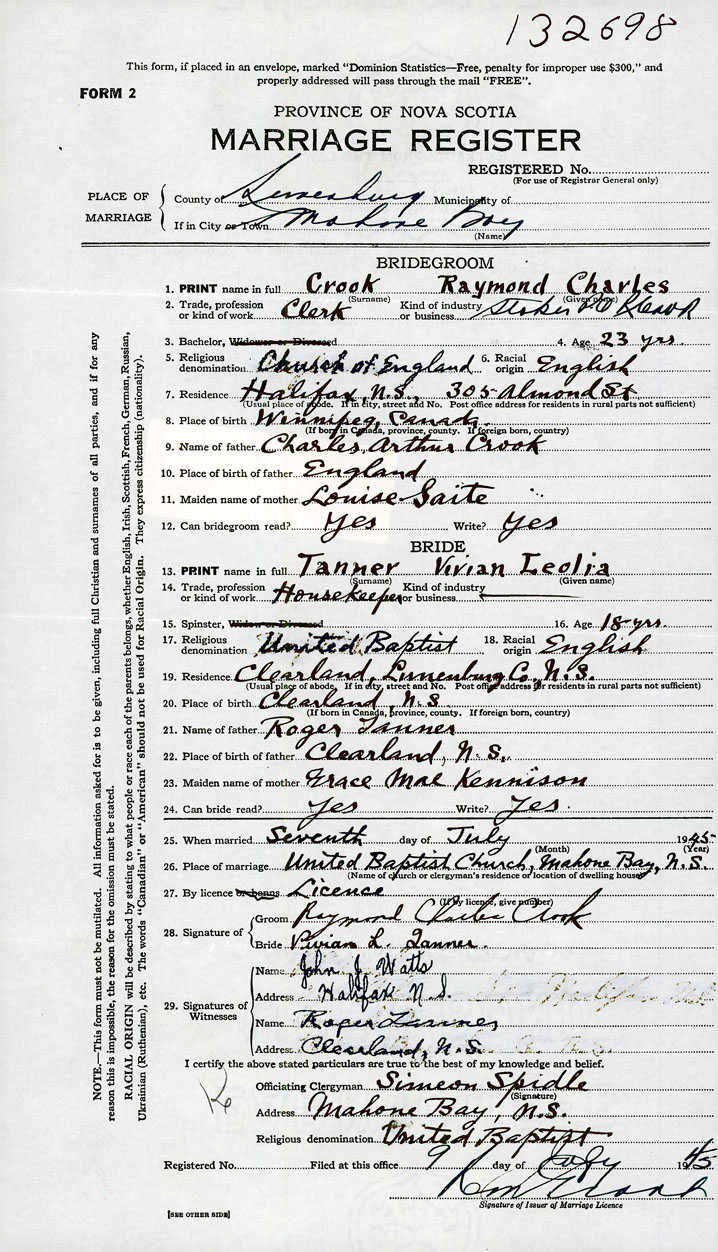 132698
This form, if placed in an envelope, marked "Dominion Statistics—Free, penalty for improper use $300," and
properly addressed will pass through the mail "FREE".
FORM 2
PROVINCE OF NOVA SCOTIA
MARRIAGE REGISTER
REGISTERED No.
(For use of Registrar General only)
PLACE OF MARRIAGE
County of Lunenburg Municipality of
If in City or Town Mahone Bay
(Name)
BRIDEGROOM
1. PRINT name in full Crook Raymond Charles
(Surname) (Given name)
2. Trade, profession or kind of work Clerk Kind of industry or business
3. Bachelor, Widower or Divorced 4. Age 23 yrs
5. Religious denomination Church of England 6. Racial origin English
7. Residence Halifax, N.S., 305 Almond St
(Usual place of abode. If in city, street and No. Post office address for residents in rural parts not sufficient)
8. Place of birth Winnipeg, Canada
(If born in Canada, province, county. If foreign born, country)
9. Name of father Charles Arthur Crook
10. Place of birth of father England
11. Maiden name of mother Louise Gaite
12. Can bridegroom read? Yes Write? Yes
BRIDE
13. PRINT name in full Tanner Vivian Leolia
(Surname) (Given name)
14. Trade, profession or kind of work Housekeeper Kind of industry or business
15. Spinster, Widow or Divorced 16. Age 18 yrs
17. Religious denomination United Baptist 18. Racial origin English
19. Residence Clearland, Lunenburg Co., N.S.
(Usual place of abode. If in city, street and No. Post office address for residents in rural parts not sufficient)
20. Place of birth Clearland, N.S
(If born in Canada, province, county. If foreign born, country)
21. Name of father Roger Tanner
22. Place of birth of father Clearland, N.S.
23. Maiden name of mother Grace Mae Kennison
24. Can bride read? Yes Write? Yes.
25. When married Seventh day of July 1945
(Month) (Year)
26. Place of marriage United Baptist Church, Mahone Bay, N.S.
(Name of church or clergyman's residence or location of dwelling house)
27. By licence or banns Licence
(If by licence, give number)
28. Signature of
Groom Raymond Charles Crook
Bride Vivian L. Tanner.
29. Signatures of Witnesses
Name John J. Watts
Address Halifax N.S.
Name Roger Tanner
Address Clearland, N.S.
I certify the above stated particulars are true to the best of my knowledge and belief.
Officiating Clergyman Simeon Spidle
(Signature)
Address Mahone Bay, N.S.
Religious denomination United Baptist
Registered No. Filed at this office 9 day of July 1945
Signature of Issuer of Marriage Licence
[SEE OTHER SIDE]
NOTE.—This form must not be mutilated. All information asked for is to be given, including full Christian and surnames of all parties, and if for any
reason this is impossible, the reason for the omission must be stated.
RACIAL ORIGIN will be described by stating to what people or race each of the parents belongs, whether English, Irish, Scottish, French, German, Russian,
Ukrainian (Ruthenian), etc. The words "Canadian" or "American" should not be used for Racial Origin. They express citizenship (nationality).